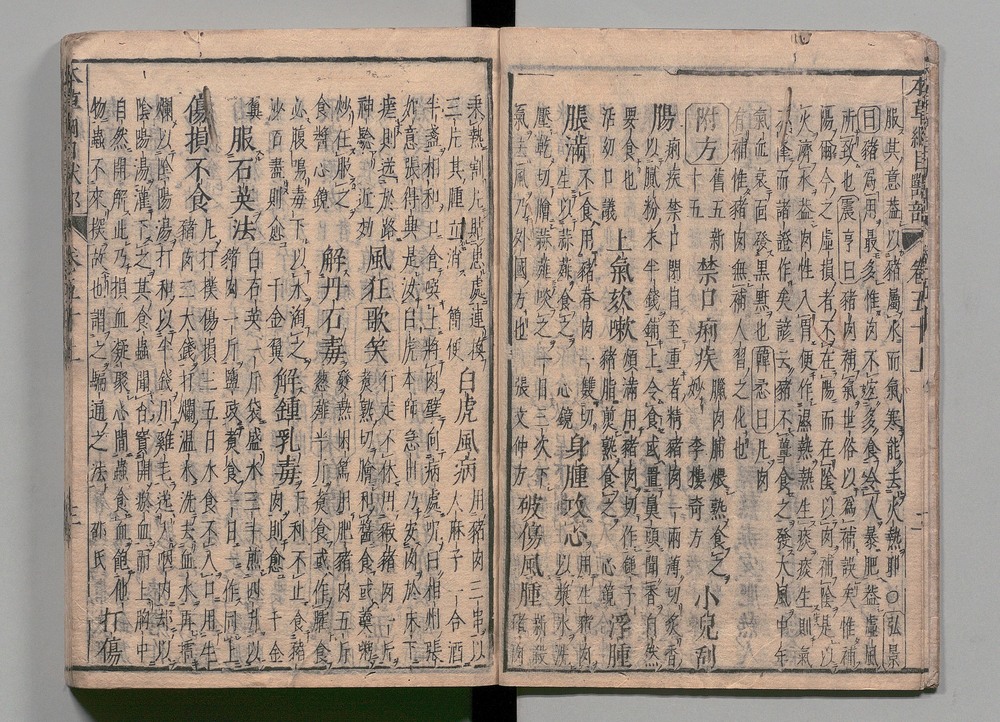 本草綱目獸部 卷五十上 二
服其意蓋以豬屬水而氣寒能去火熱耶○弘景
曰豬為用最多惟肉不宜多食令人暴肥蓋虛風
所致也震亨曰豬肉補氣世俗以為補誤矣惟補
陽爾今之虛損者不在陽而在陰以肉補陰是以
火濟水蓋肉性入胃便作濕熱熱生痰痰生則氣
不降而諸證作矣諺云豬不薑食之發大風中年
氣血衰面發黑䵟也韓㤎曰凡肉
有補惟豬肉無補人習之化也
附方 舊五新十五 禁口痢疾 臘肉脯煨熟食之妙 李樓奇方 小兒刮
腸 痢疾禁口閉目至重者精豬肉一兩薄切炙香以膩粉末半錢鋪上令食或置鼻頭聞香自然
要食也 活幼口議 上氣欬嗽 煩滿用豬肉作子豬脂煎熟食之 心鏡 浮腫
脹滿 不食用豬脊肉一雙切作生以蒜薤食之 心鏡 身腫攻心 用生豬肉以漿水洗
壓乾切膾蒜薤啖之一日三次下氣去風乃外國方也 張文仲方 破傷風腫 新殺豬肉
乘熱割片貼患處連換三片其腫立消 簡便 白虎風病 用豬肉三串以大麻子一合酒
半盞相和口含噀上將肉擘向病處呪曰相州張如意張得典是汝白虎本師急出安肉於床下
瘥則送於路神驗 近効 風狂歌笑 行走不休用豭豬肉一斤煮熟切膾和醬食或羹粥
炒任服之 食醫心鏡 解丹石毒 發熱困篤用肥豬肉五斤葱薤半斤煮食或作臛食
必腹鳴毒下以水淘之沙石盡則愈 千金翼 解鍾乳毒 下利不止食豬肉則愈 千金
翼 服石英法 白石英一大斤袋盛水三斗煎四升以豬肉一斤鹽豉煮食一日一作 同上
傷損不食 凡打撲傷損三五日水食不入口用生豬肉二大錢打爛溫水洗去血水再擂
爛以陰陽湯打和以半錢用雞毛送入咽內却以陰陽湯灌下之其食蟲聞香竇開瘀血而上胸中
自然開解此乃損血凝聚心間蟲食血飽他物蟲不來探故也謂之騙通之法 邵氏 打傷
本草綱目獸部 卷五十上 三